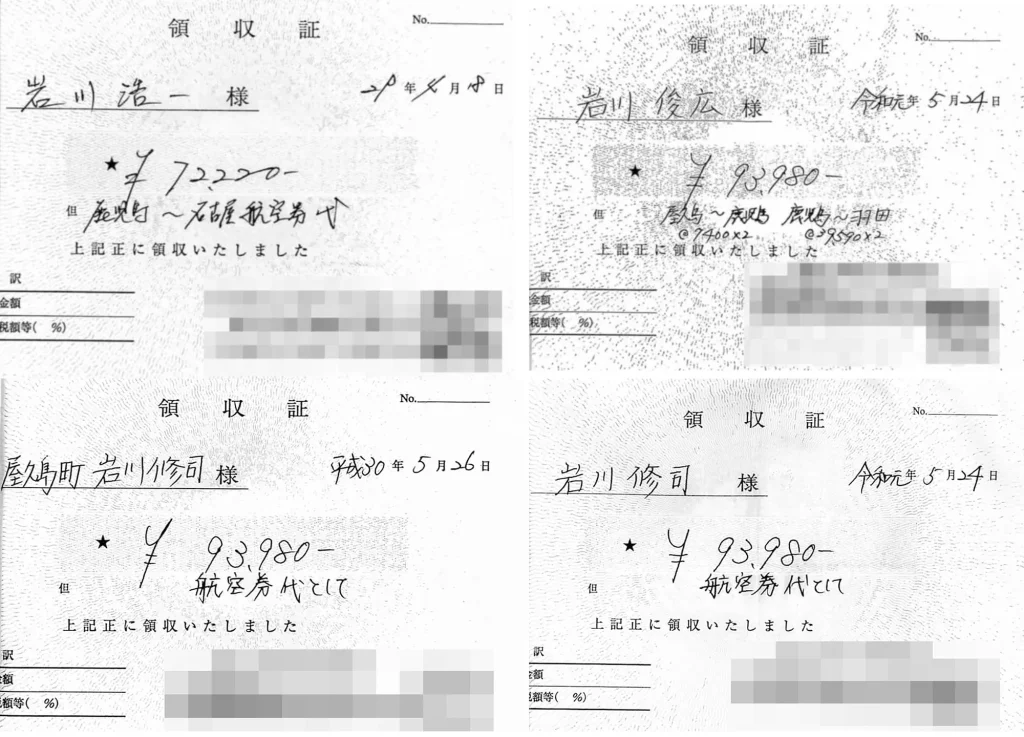 領収証
No.
岩川 浩一 様
29年4月18日
★ ¥72,220-
但 鹿児島〜名古屋航空券代
上記正に領収いたしました
訳
金額
税額等( %)
領収証
No.
岩川 俊広 様
令和元年5月24日
★ ¥93,980-
但 屋久島〜鹿児島 鹿児島〜羽田
@7400×2 @39590×2
上記正に領収いたしました
訳
金額
税額等( %)
領収証
No.
屋久島町 岩川修司 様
平成30年5月26日
★ ¥93,980-
但 航空券代として
上記正に領収いたしました
訳
金額
税額等( %)
領収証
No.
岩川 修司 様
令和元年5月24日
★ ¥93,980-
但 航空券代として
上記正に領収いたしました
訳
金額
税額等( %)